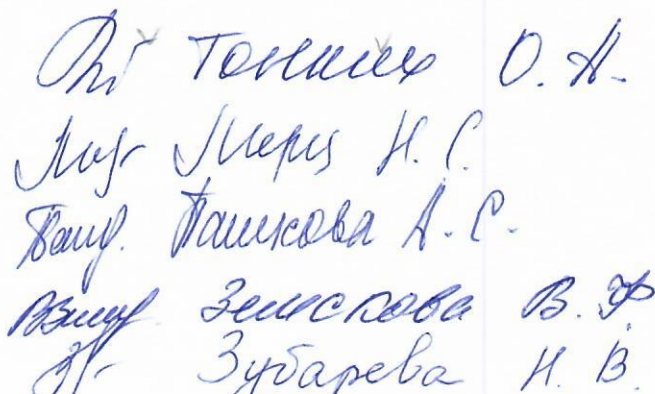 Тонких О. А.
Мерц Н. С.
Пашкова А. С.
Земскова В. Ф.
Зубарева Н. В.